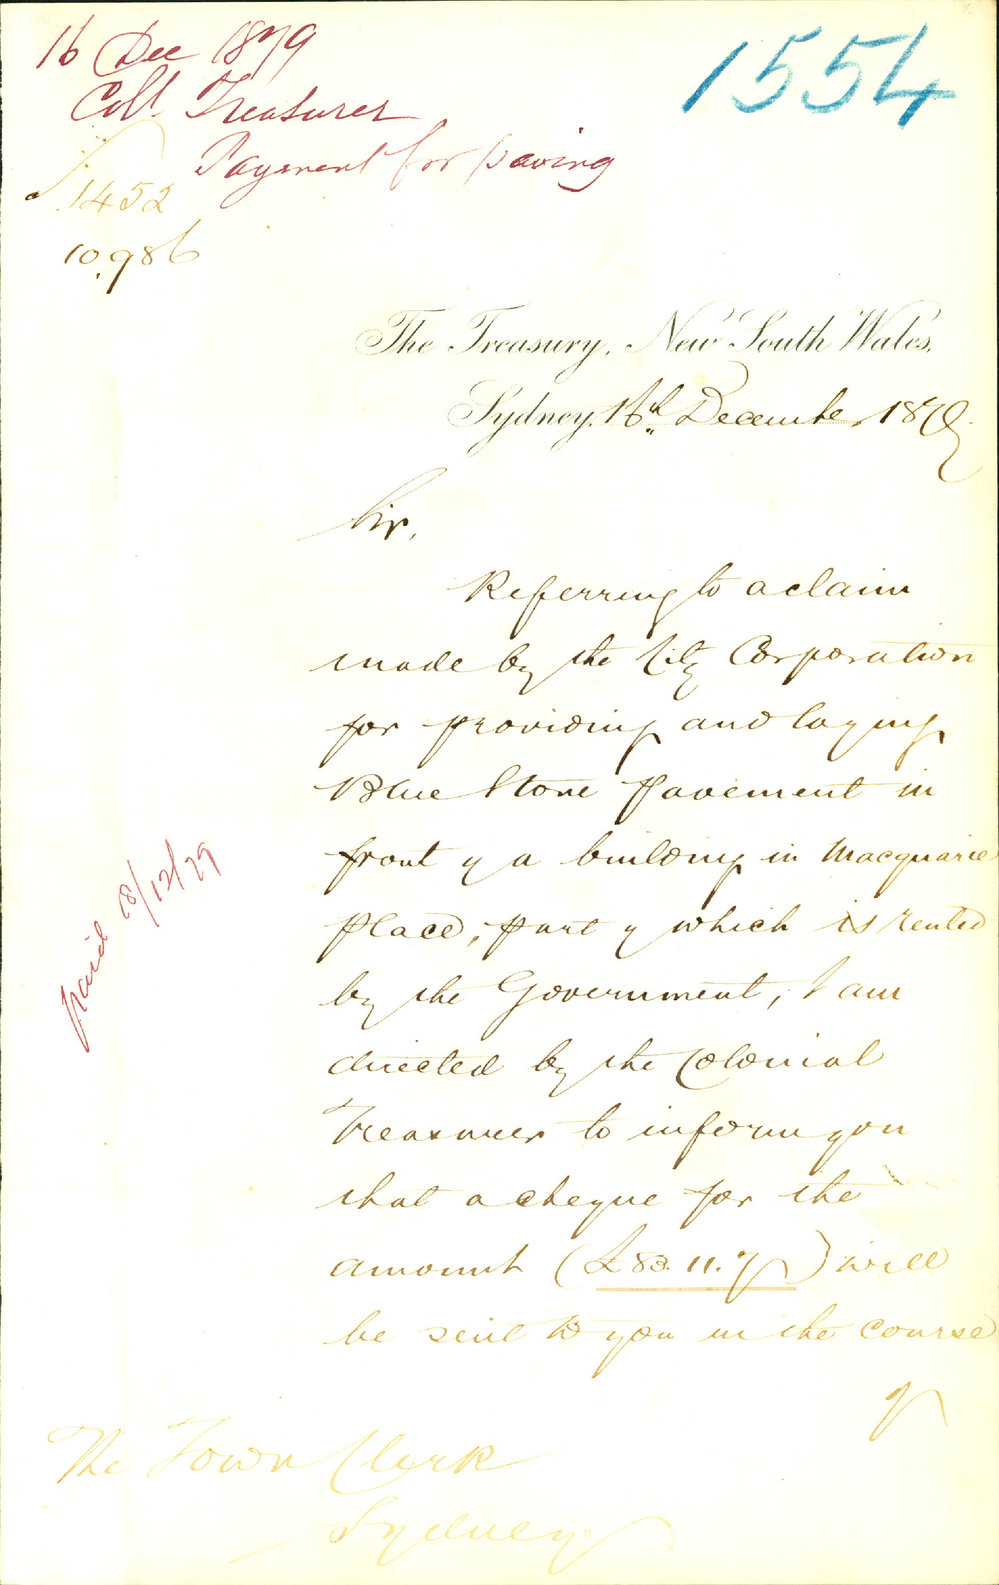 16 Dec 1879
Coll Treasurer
Payment for paving
1554
1452
10.986
The Treasury, New South Wales,
Sydney, 16th December 1879.
Sir,
Referring to a claim
made by the City Corporation
for providing and laying
Blue Stone pavement in
front of a building in Macquarie
Place, part of which is rented
by the Government, I am
directed by the Colonial
Treasurer to inform you
that a cheque for the
amount (£83.11.7) will
be sent to you in the course
of
paid 18/12/79
The Town Clerk
Sydney